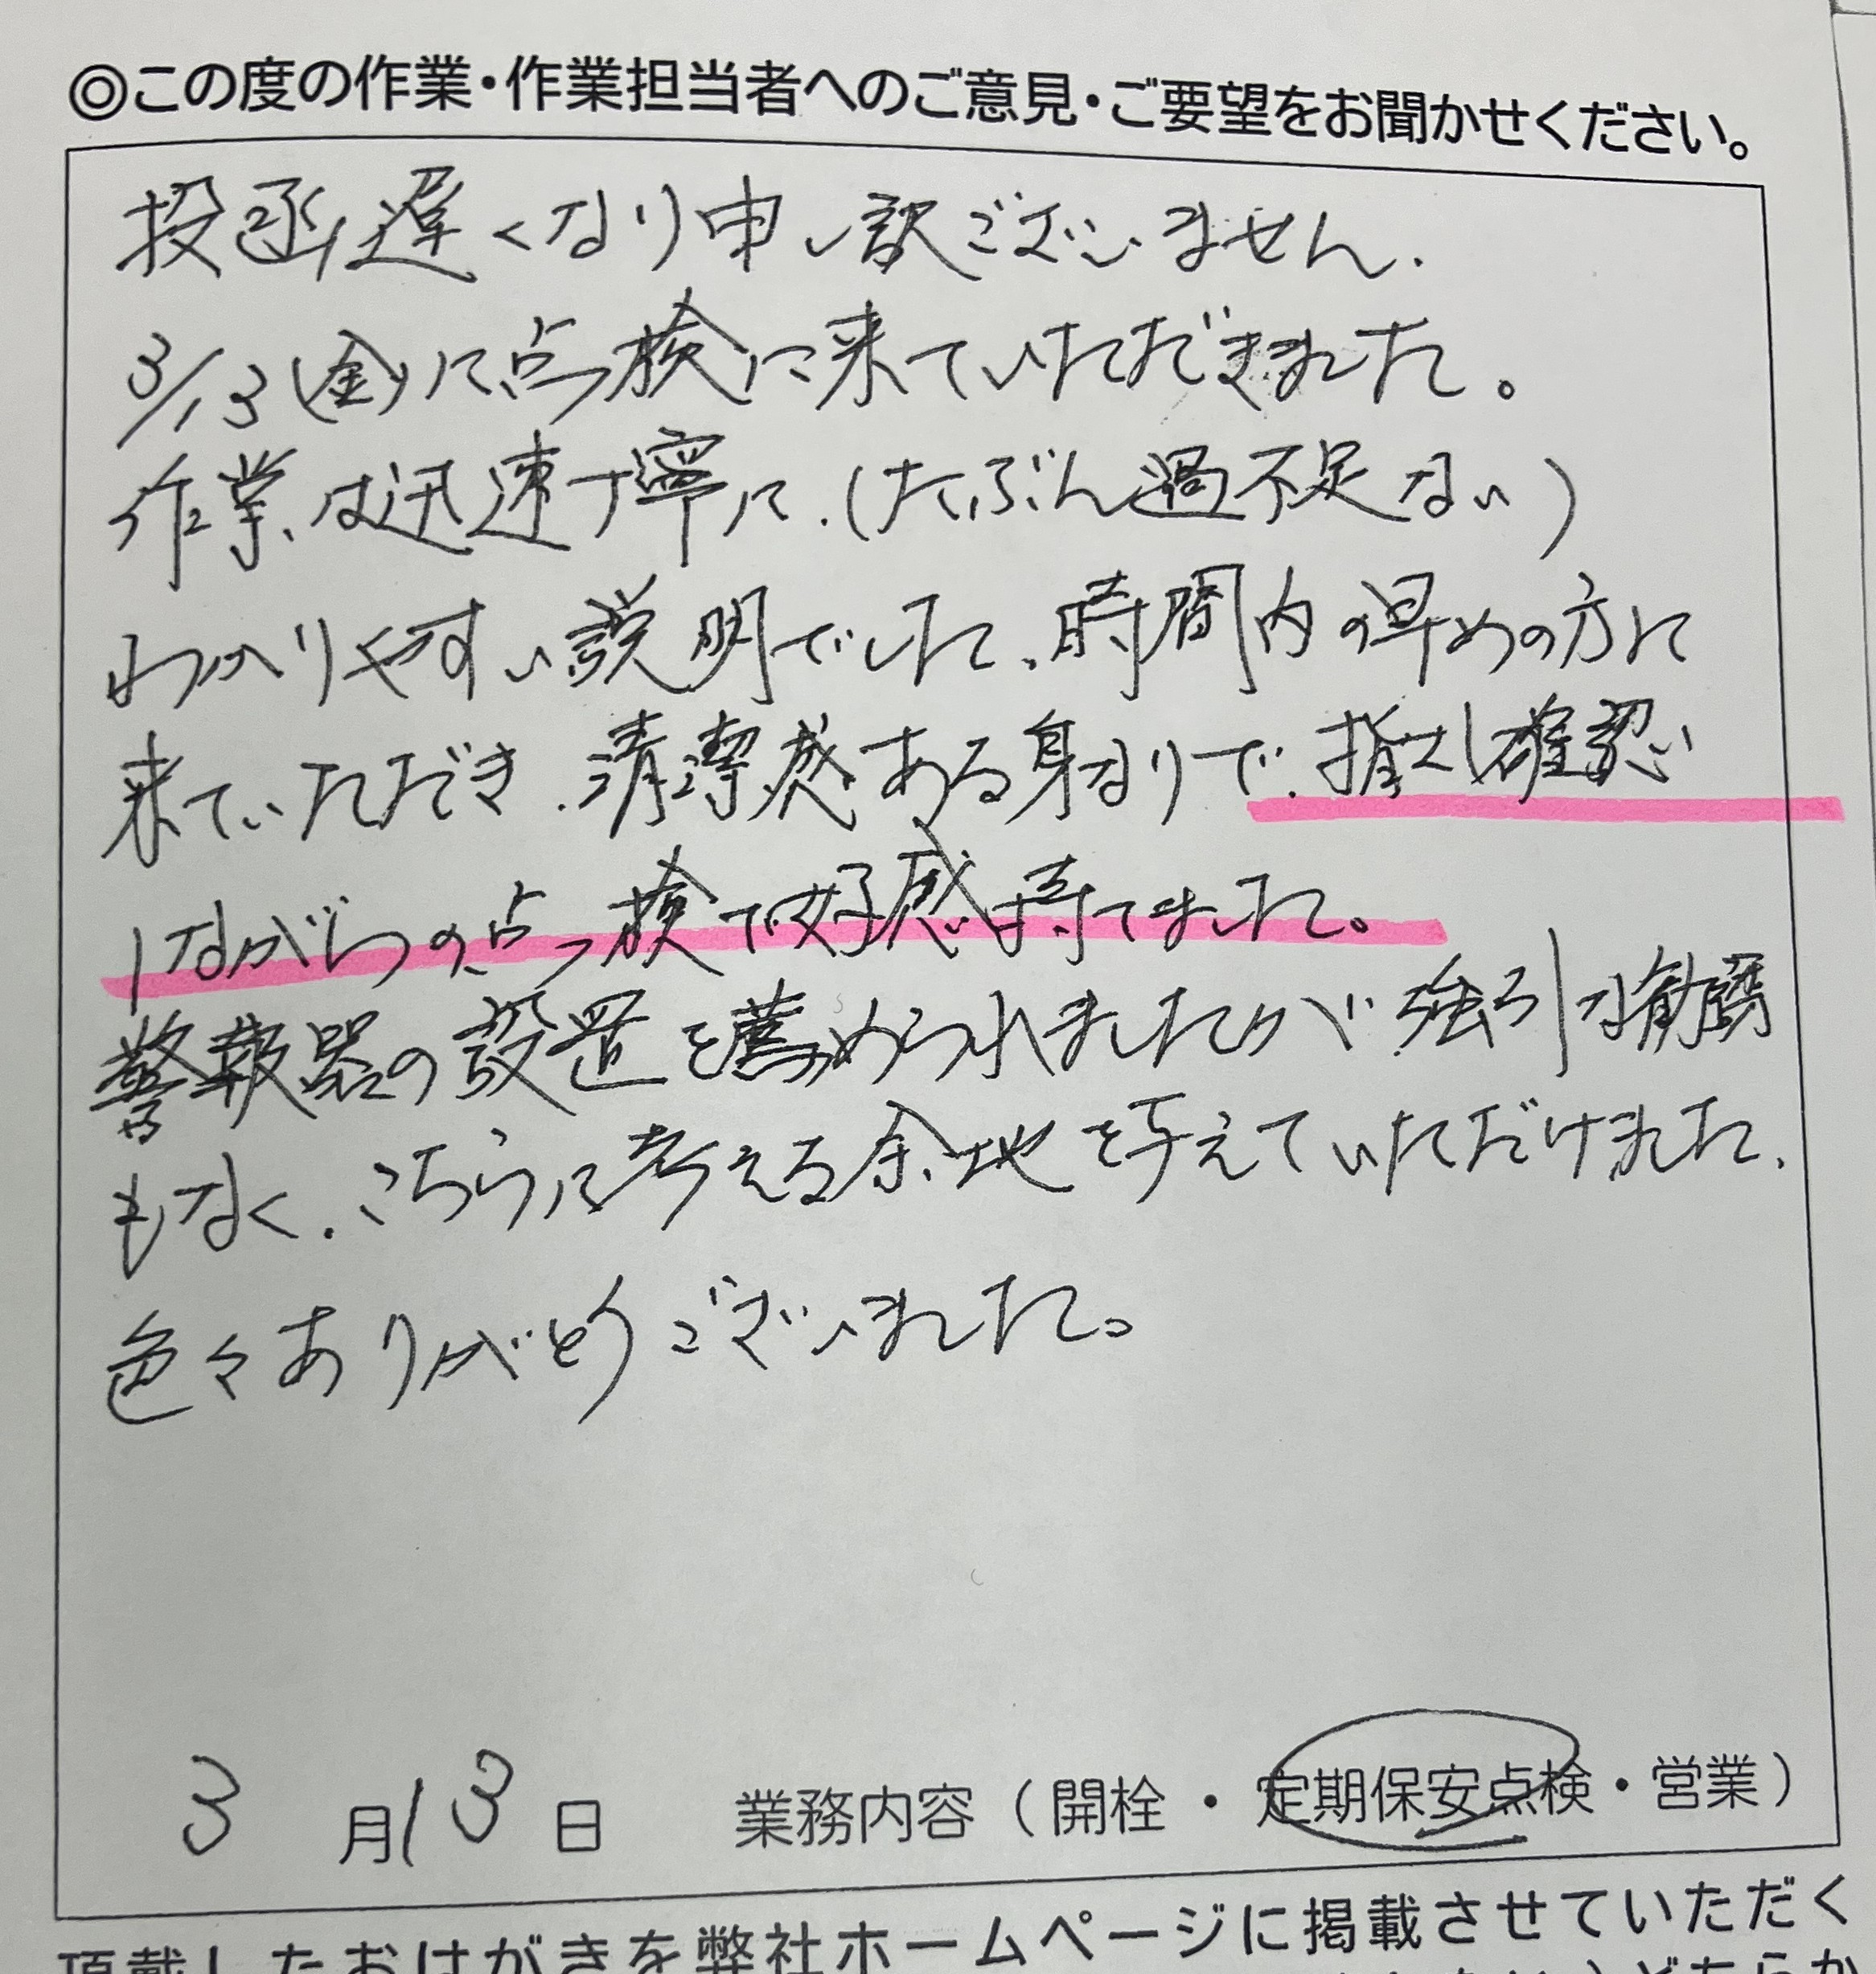 ◎この度の作業・作業担当者へのご意見・ご要望をお聞かせください。
投函遅くなり申し訳ございません.
3/13(金)に点検に来ていただきました。
作業は迅速丁寧に.(たぶん過不足ない)
わかりやすい説明でした、時間内の早めの方に
来ていただき、清潔感ある身なりで、指さし確認
しながらの点検で好感持てました。
警報器の設置を薦められましたが強引な勧誘
もなく、こちらに考える余地を与えていただけました、
色々ありがとうございました。
3月13日 業務内容(開栓・定期保安点検・営業)
頂載したおはがきを弊社ホームページに掲載させていただく